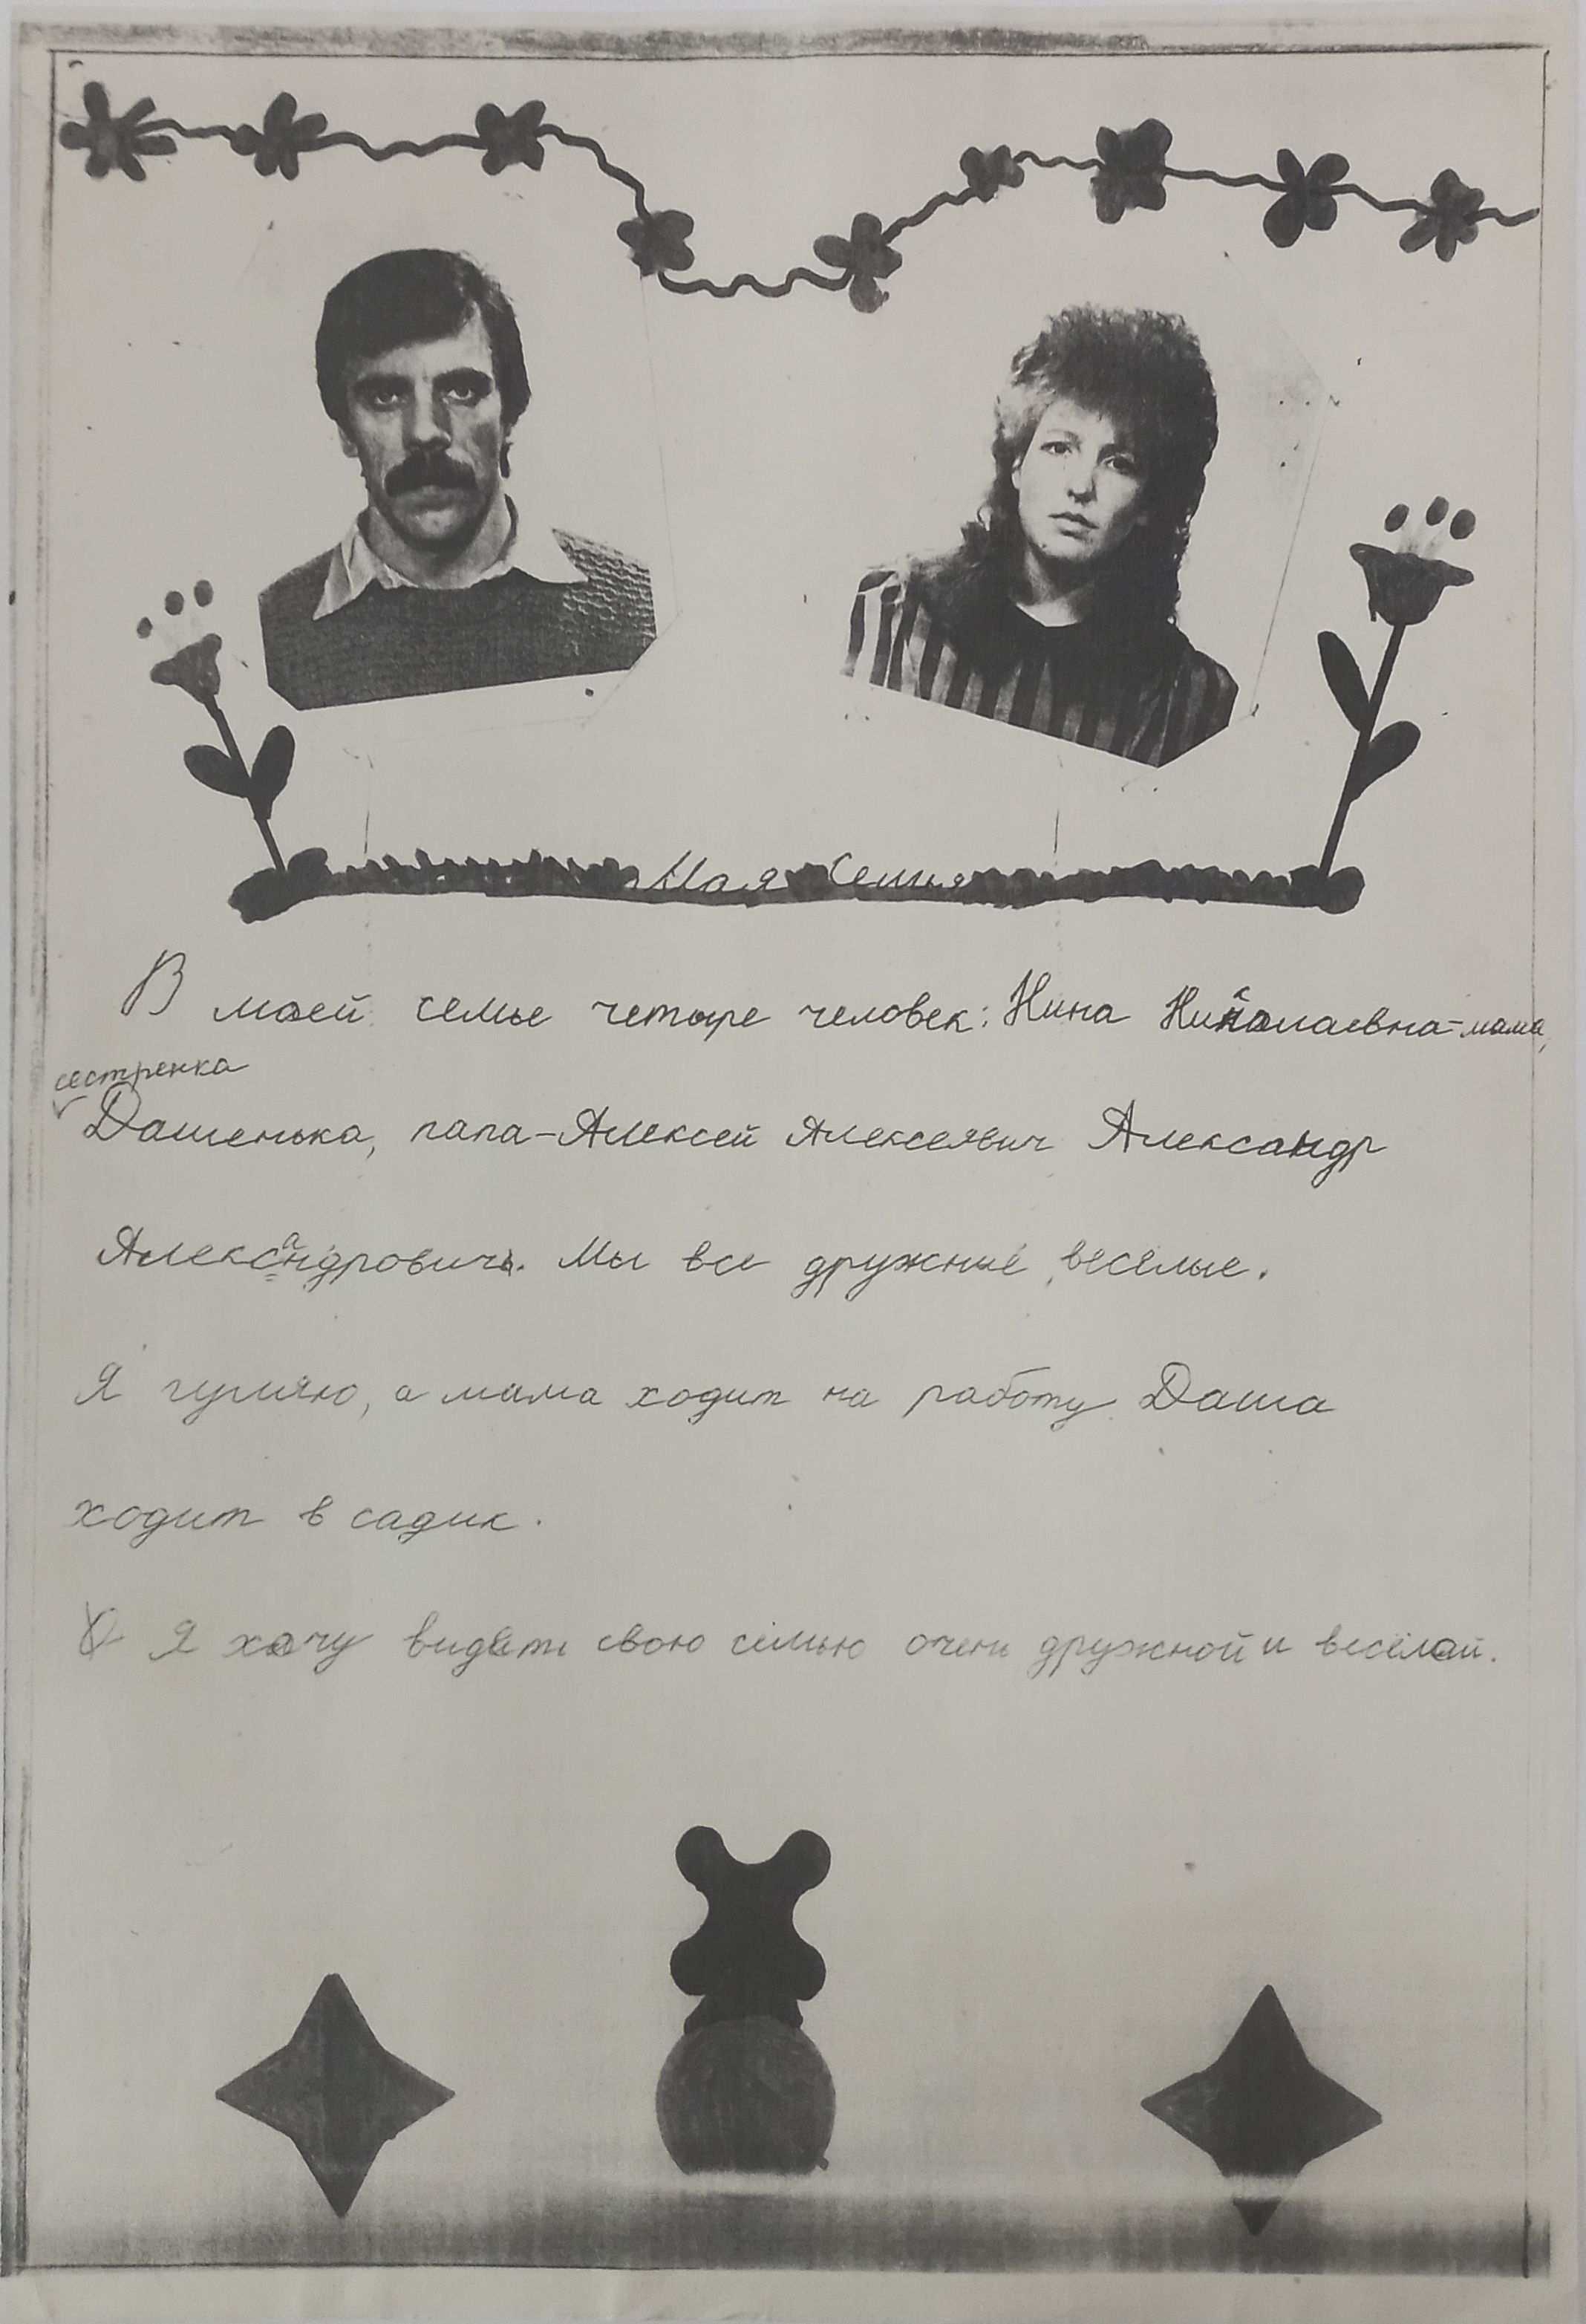 Мая Семия
В моей семье четыре человек: Нина Николаевна-мама,
сестренка
Дашенька, папа-Алексей Алексеявич Александр
Александрович. Мы все дружные, весёлые.
Я гуляю, а мама ходит на работу Даша
ходит в садик.
Я хочу видеть свою семью очень дружной и весёлай.